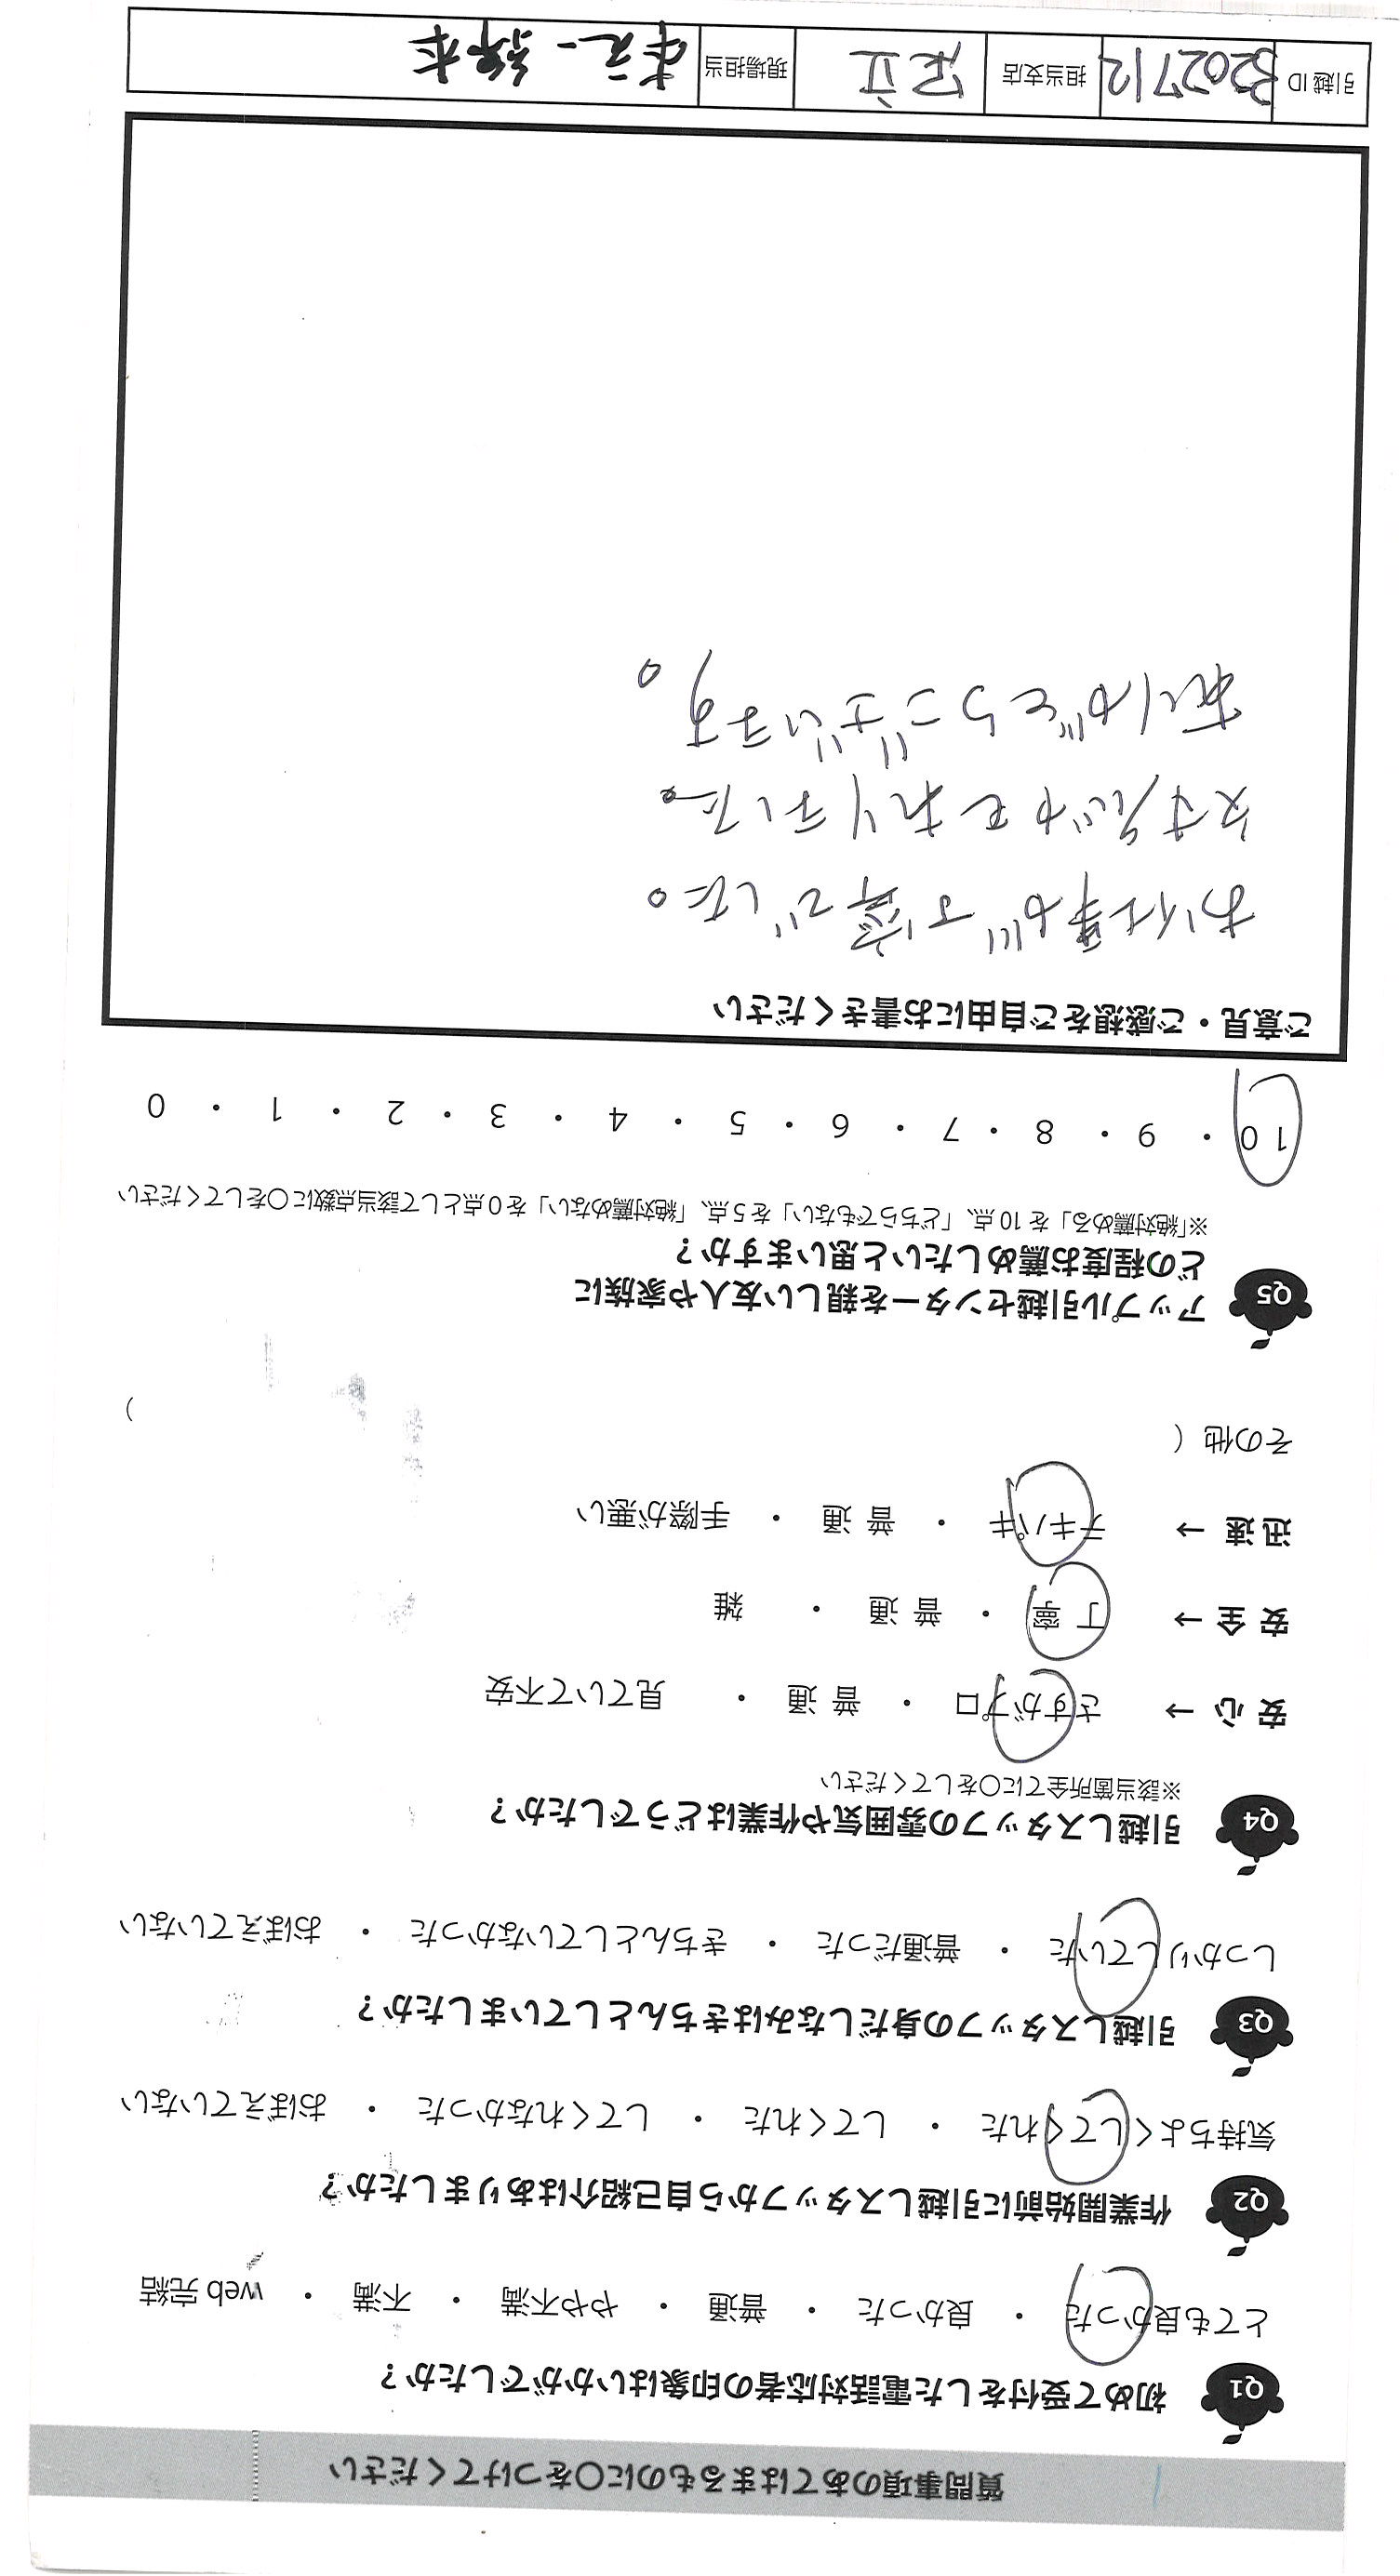 質問事項のあてはまるものに○をつけてください
Q1 初めて受付をした電話対応者の印象はいかがでしたか？
とても良かった ・ 良かった ・ 普通 ・ やや不満 ・ 不満 ・ web 完結
Q2 作業開始前に引越しスタッフから自己紹介はありましたか？
気持ちよくしてくれた ・ してくれた ・ してくれなかった ・ おぼえていない
Q3 引越しスタッフの身だしなみはきちんとしていましたか？
しっかりしていた ・ 普通だった ・ きちんとしていなかった ・ おぼえていない
Q4 引越しスタッフの雰囲気や作業はどうでしたか？
※該当箇所全てに○をしてください
安 心 → さすがプロ ・ 普 通 ・ 見ていて不安
安 全 → 丁 寧 ・ 普 通 ・ 雑
迅 速 → テキパキ ・ 普 通 ・ 手際が悪い
その他（ ）
Q5 アップル引越センターを親しい友人や家族に
どの程度お薦めしたいと思いますか？
※「絶対薦める」を 10 点、「どちらでもない」を 5 点、「絶対薦めない」を 0 点として該当点数に○をしてください
10 ・ 9 ・ 8 ・ 7 ・ 6 ・ 5 ・ 4 ・ 3 ・ 2 ・ 1 ・ 0
ご意見・ご感想をご自由にお書きください
お仕事が丁寧でした。
安心
ありがとうございます。
引越 ID 3202712 担当支店 足立 現場担当